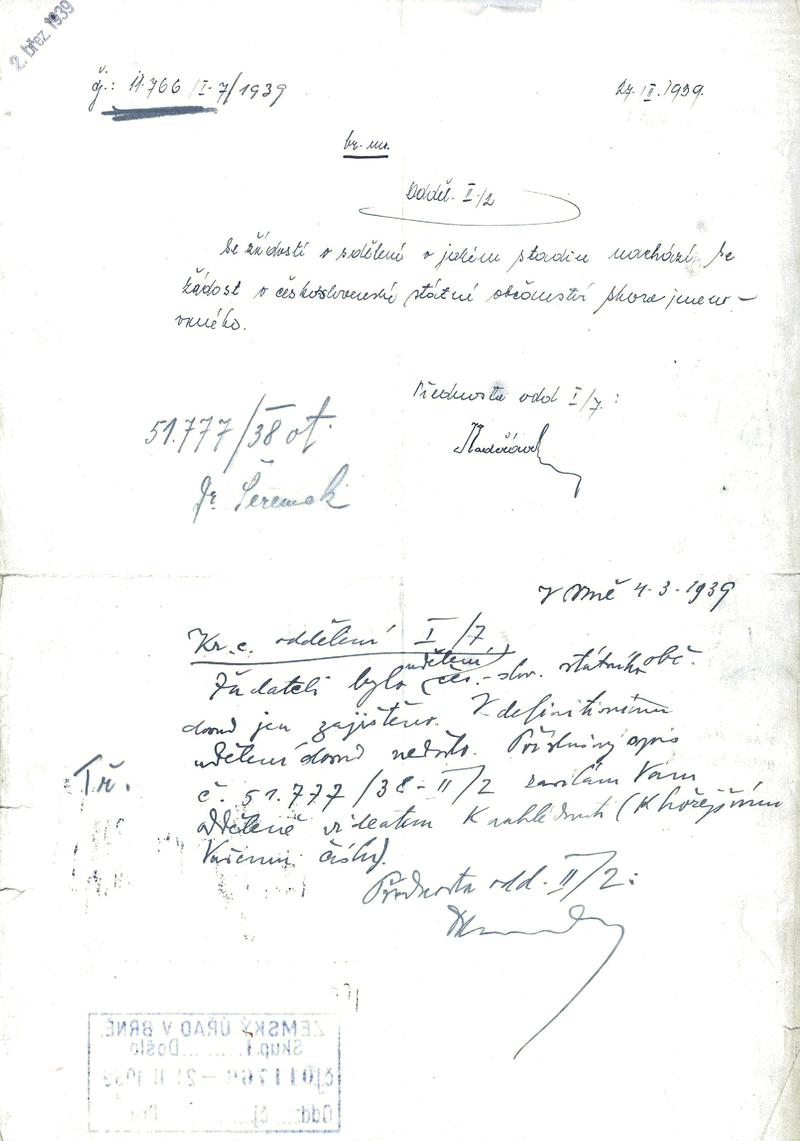 2. břez. 1939
čj.: 11.766/I-7/1939
24. II. 1939.
br. m.
Odděl. II/2
se žádostí o sdělení v jakém stadiu nachází se
žádost o československé státní občanství shora jmeno-
vaného.
Přednosta odd I/7:
51.777/38 ot.
Dr
V Brně 4.3.1939
Kr. c. oddělení I/7
Žadateli bylo udělení čes.-slov. státního obč.
dosud jen zajištěno. K definitivnímu
udělení dosud nedošlo. Příslušný spis
Tř.
č. 51.777/38-II/2 zasílám Vám
odděleně k nahlédnutí (K hořejšímu
Vašemu číslu).
Přednosta odd. II/2:
ZEMSKÝ ÚŘAD V BRNĚ
Skup. I. Došlo
čj 011766 - 21. II 1939
Odd: čj.